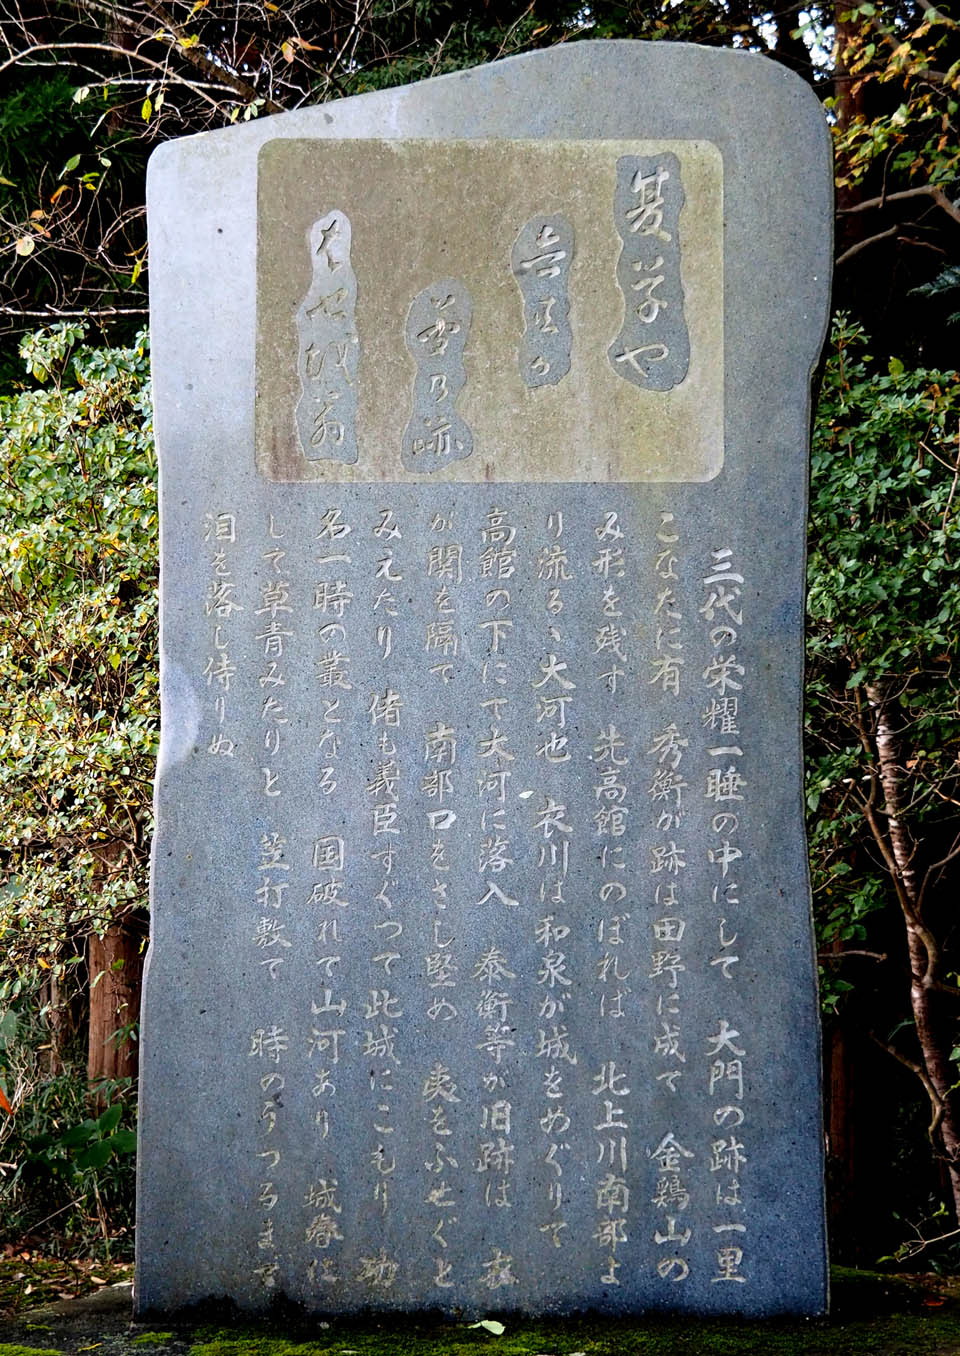 夏草や
兵共が
夢乃跡
はせ越翁
三代の栄耀一睡の中にして　大門の跡は一里
こなたに有　秀衡が跡は田野に成て　金鶏山の
み形を残す　先高館にのぼれば　北上川南部よ
り流るゝ大河也　衣川は和泉が城をめぐりて
高館の下にて大河に落入　泰衡等が旧跡は　衣
が関を隔て　南部口をさし堅め　夷をふせぐと
みえたり　偖も義臣すぐつて此城にこもり　功
名一時の叢となる　国破れて山河あり　城春に
して草青みたりと　笠打敷て　時のうつるまで
泪を落し侍りぬ